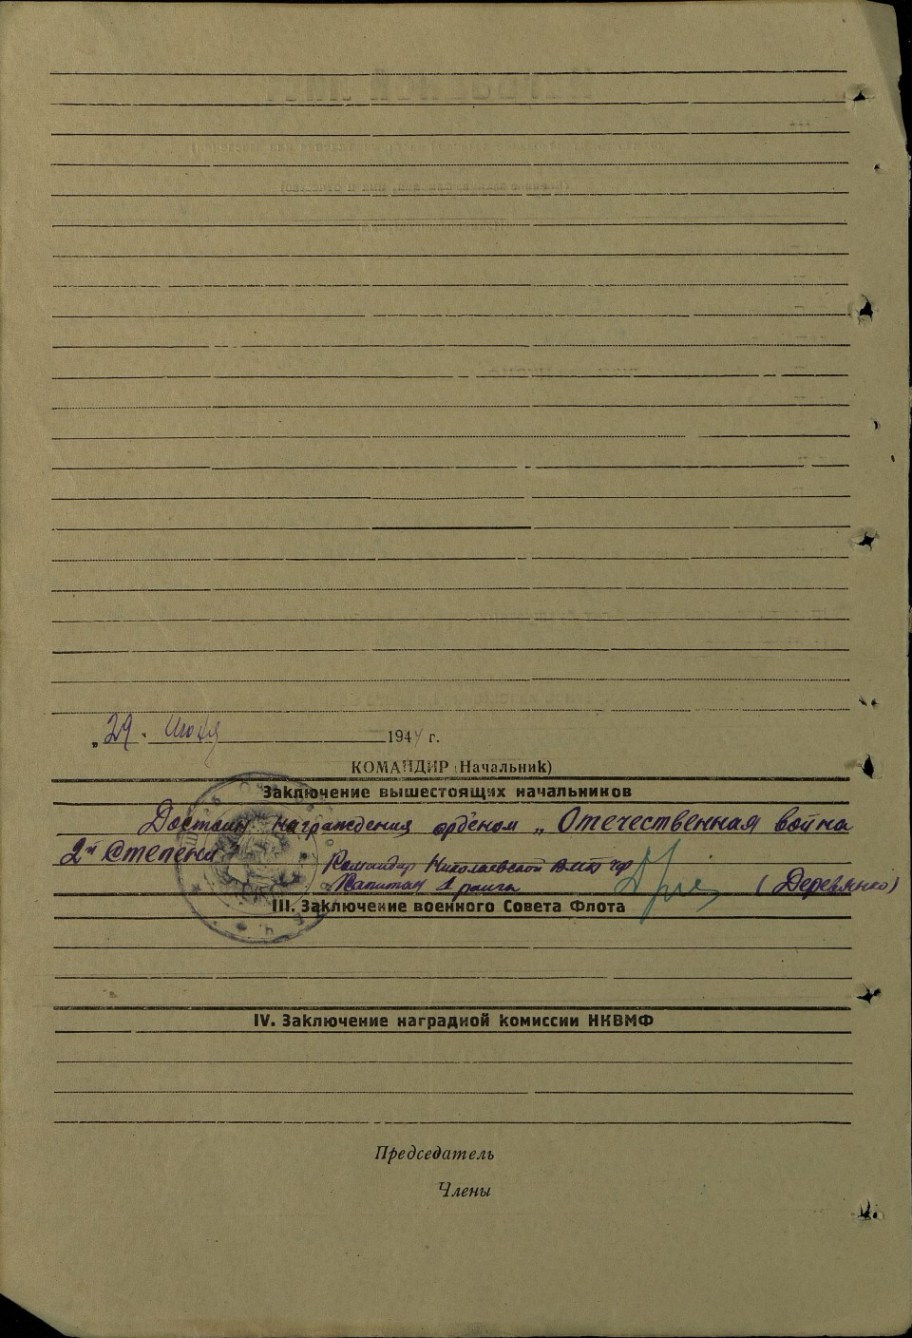 „29“ Июля 1944 г.
КОМАНДИР (Начальник)
Заключение вышестоящих начальников
Достоин награждения орденом „Отечественная война
2й Степени"
Командир Николаевской ВМБ ЧФ
Капитан 1 ранга (Деревянко)
III. Заключение военного Совета Флота
IV. Заключение наградной комиссии НКВМФ
Председатель
Члены